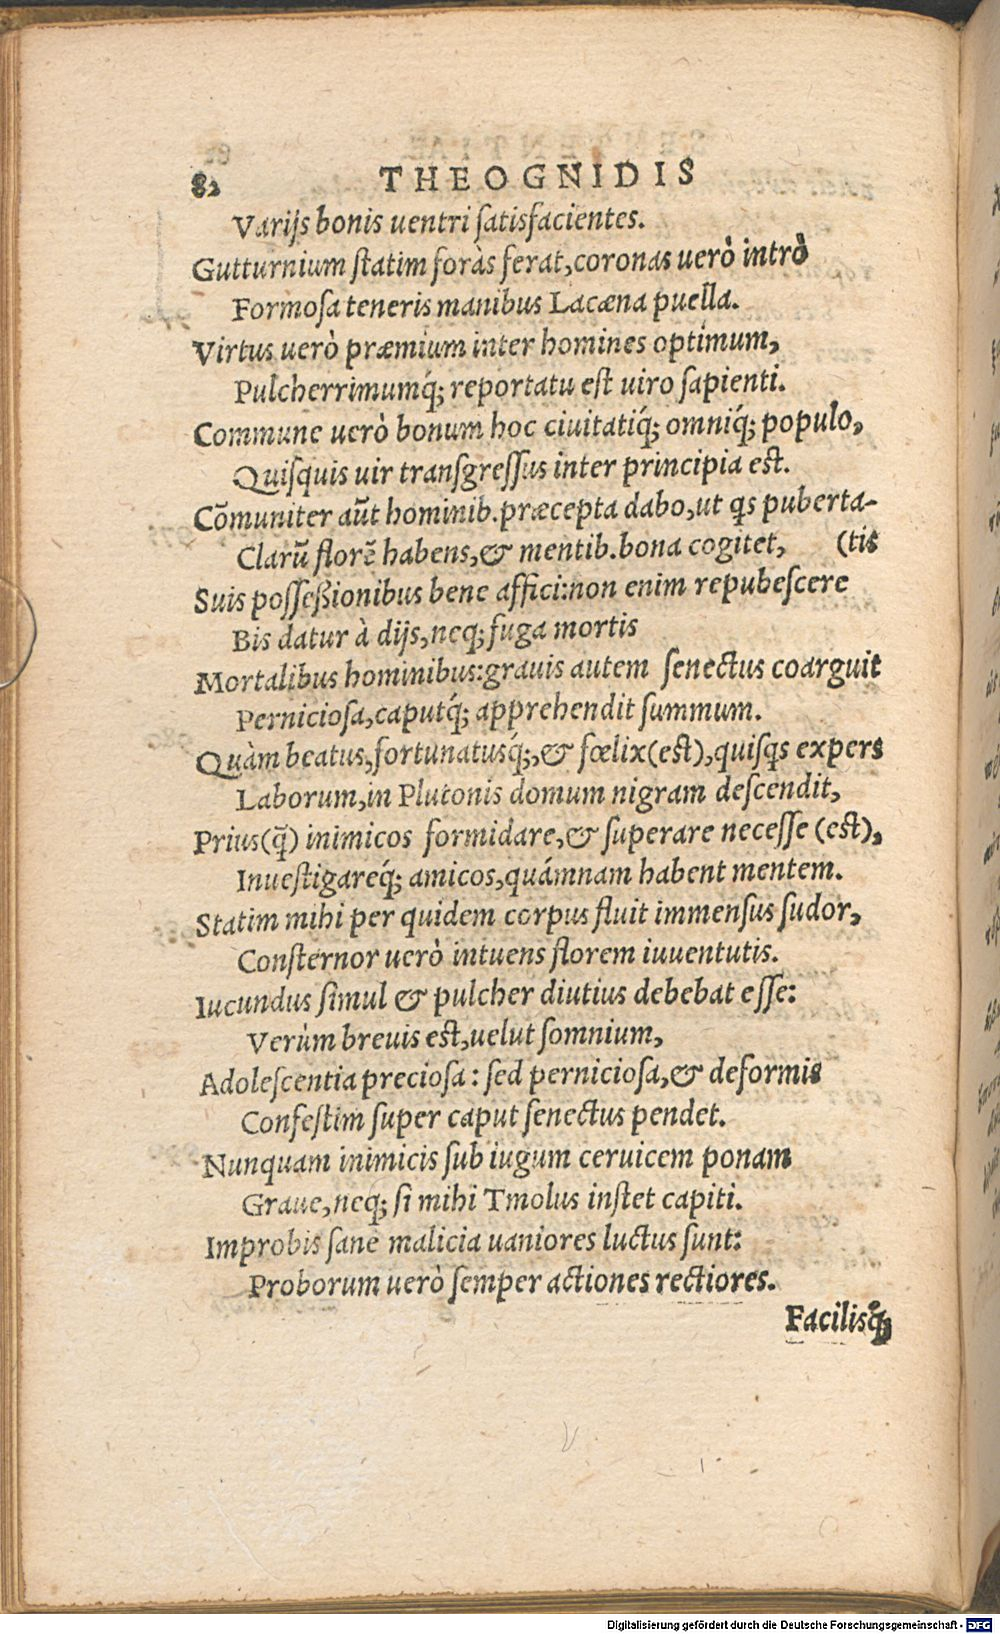 82 THEOGNIDIS
Varijs bonis uentri ſatisfacientes.
Gutturnium ſtatim foràs ferat, coronas uerò intrò
Formoſa teneris manibus Lacæna puella.
Virtus uerò præmium inter homines optimum,
Pulcherrimumq́; reportatu eſt uiro ſapienti.
Commune uerò bonum hoc ciuitatiq́; omniq́; populo,
Quiſquis uir tranſgreſſus inter principia eſt.
Cõmuniter aũt hominib. præcepta dabo, ut qs puberta-
Clarũ florẽ habens, & mentib. bona cogitet, (tis
Suis poſſeßionibus bene affici: non enim repubeſcere
Bis datur à dijs, neq; fuga mortis
Mortalibus hominibus: grauis autem ſenectus coarguit
Pernicioſa, caputq́; apprehendit ſummum.
Quàm beatus, fortunatusq́;, & fœlix (eſt), quiſqs expers
Laborum, in Plutonis domum nigram deſcendit,
Prius (q̃) inimicos formidare, & ſuperare neceſſe (eſt),
Inueſtigareq́; amicos, quámnam habent mentem.
Statim mihi per quidem corpus fluit immenſus ſudor,
Conſternor uerò intuens florem iuuentutis.
Iucundus ſimul & pulcher diutius debebat eſſe:
Verùm breuis eſt, uelut ſomnium,
Adoleſcentia precioſa: ſed pernicioſa, & deformis
Confeſtim ſuper caput ſenectus pendet.
Nunquam inimicis ſub iugum ceruicem ponam
Graue, neq; ſi mihi Tmolus inſtet capiti.
Improbis ſanè malicia uaniores luctus ſunt:
Proborum uerò ſemper actiones rectiores.
Facilisq́;
Digitalisierung gefördert durch die Deutsche Forschungsgemeinschaft - DFG